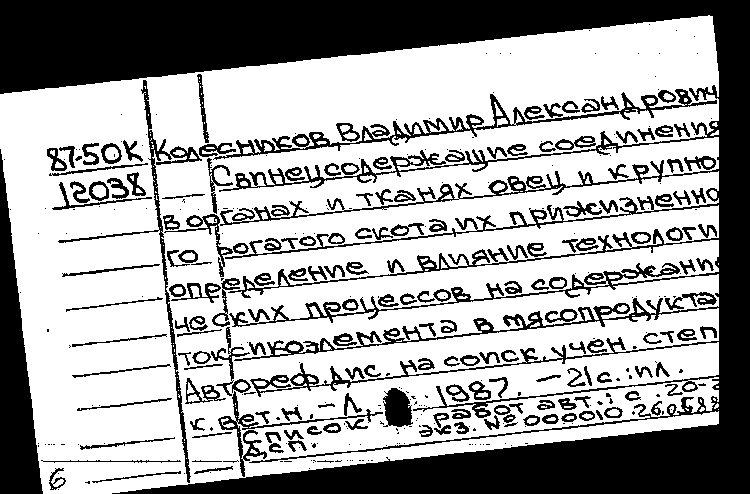 87-50К Колесников, Владимир Александрович
12038 Свинецсодержащие соединения
в органах и тканях овец и крупно-
го рогатого скота, их прижизненно
определение и влияние технологи
ческих процессов на содержание
токсикоэлемента в мясопродукта
Автореф. дис. на соиск. учен. степ
к. вет. н. - Л., 1987. - 21 с. : ил.
Список работ авт.: с. 20-2
Д,сп. экз. № 000010 26.05.88
6